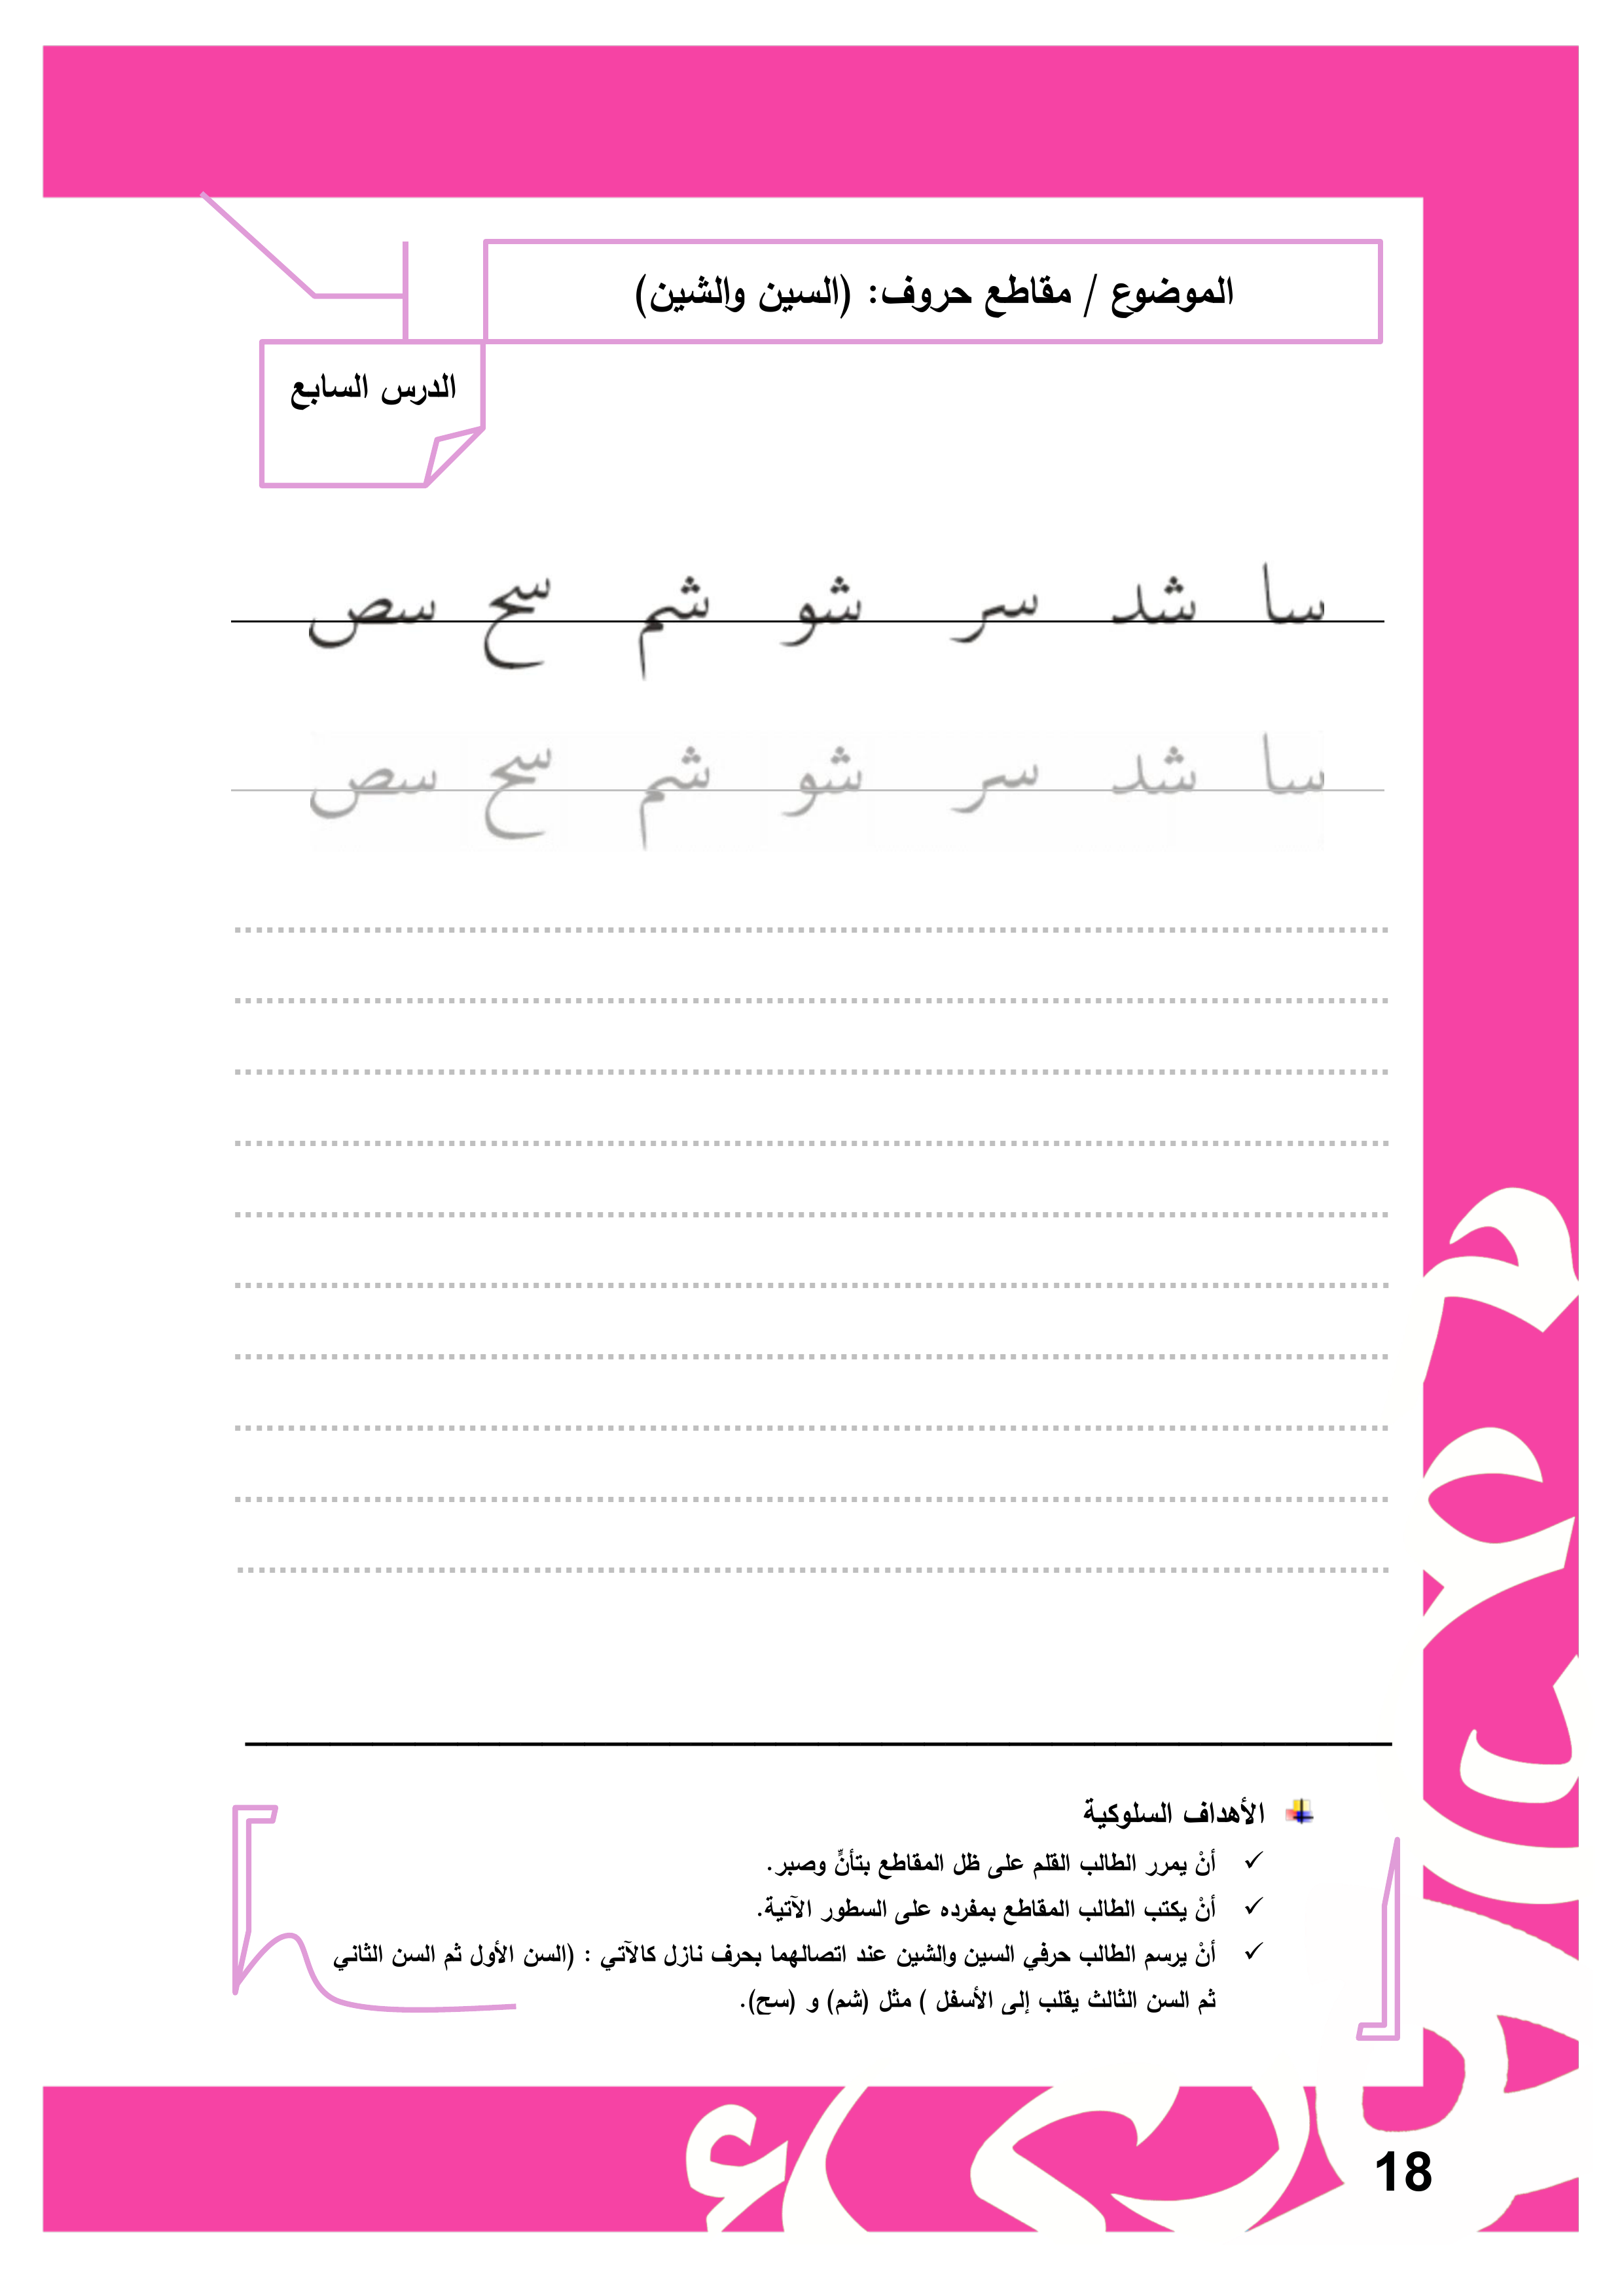 الموضوع / مقاطع حروف: (السين والشين)
الدرس السابع
سا شد سر شو شم سح سص
سا شد سر شو شم سح سص
الأهداف السلوكية
✓ أنْ يمرر الطالب القلم على ظل المقاطع بتأنٍّ وصبر.
✓ أنْ يكتب الطالب المقاطع بمفرده على السطور الآتية.
✓ أنْ يرسم الطالب حرفي السين والشين عند اتصالهما بحرف نازل كالآتي : (السن الأول ثم السن الثاني
ثم السن الثالث يقلب إلى الأسفل ) مثل (شم) و (سح).
18